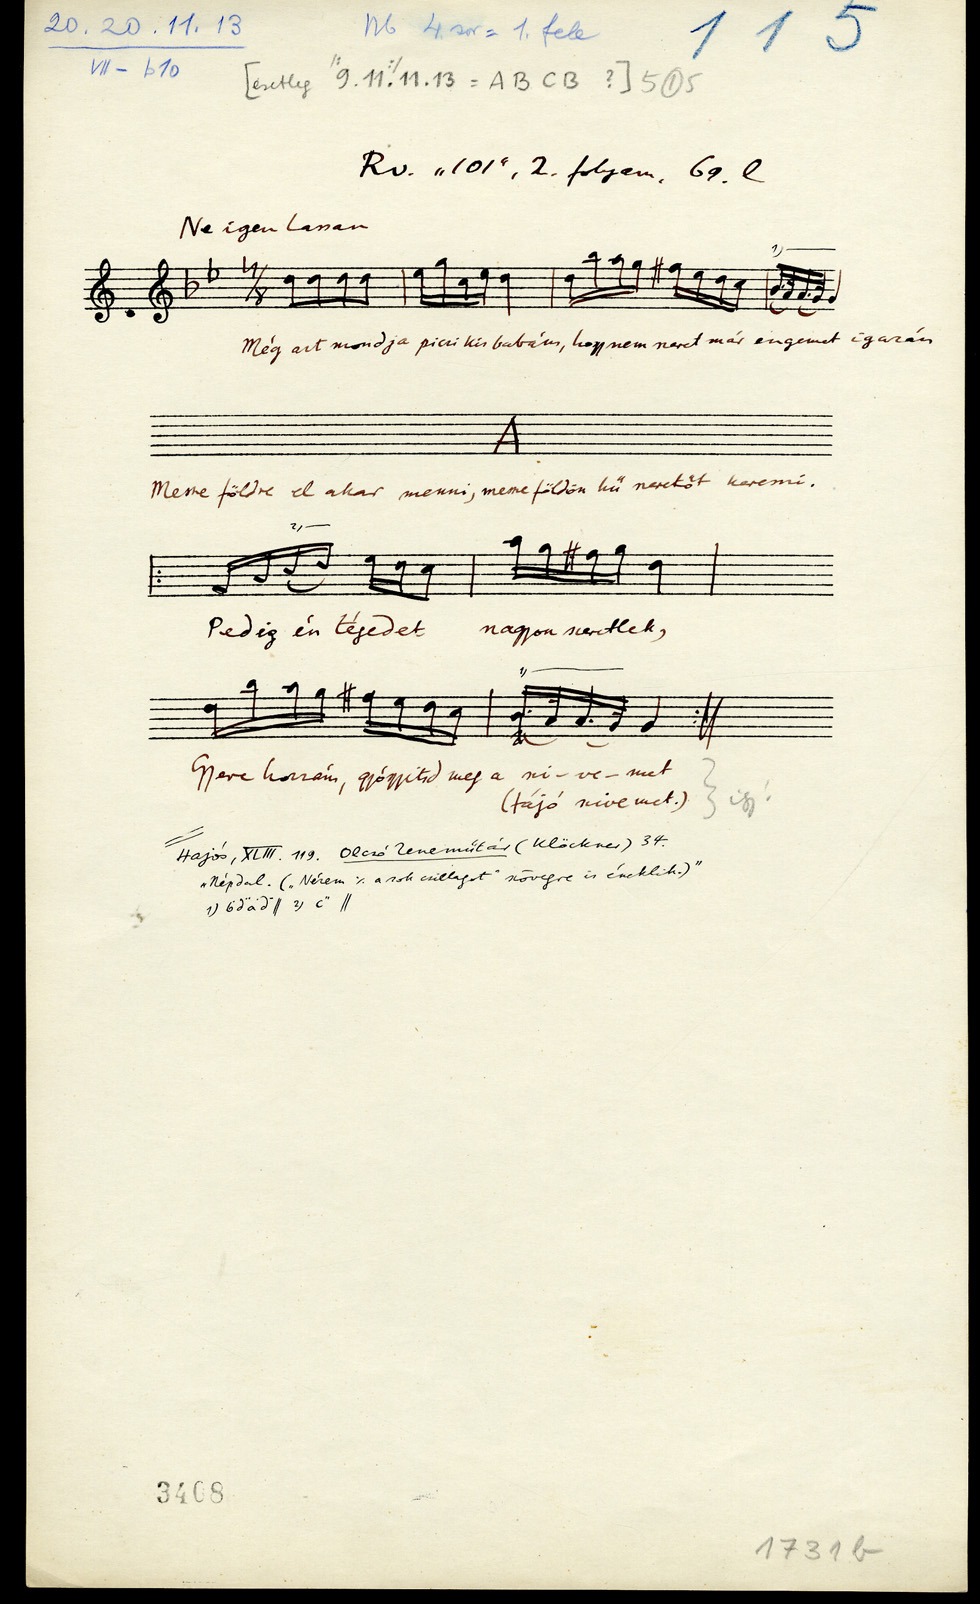 20. 20. 11. 13 Nb 4. sor = 1. fele 115
VII – b10
[esetleg 9. 11. 11. 13 = A B C B ?] 5 ① 5
Rv. „101", 2. folyam. 69. l
Ne igen lassan
4/8
1)
Még azt mondja pici kis babám, hogy nem szeret már engemet igazán
A
Messze földre el akar menni, messze földön hű szeretőt keresni.
2)
Pedig én tégedet nagyon szeretlek,
1)
Gyere hozzám, gyógyítsd meg a szi-ve-met
(fájó szivemet.) így!
Hajós, XLIII. 119. Olcsó Zeneműtár (Klöckner) 34.
„Népdal. („Nézem ⁒ a sok csillagot" szövegre is éneklik.)"
3408
1731b